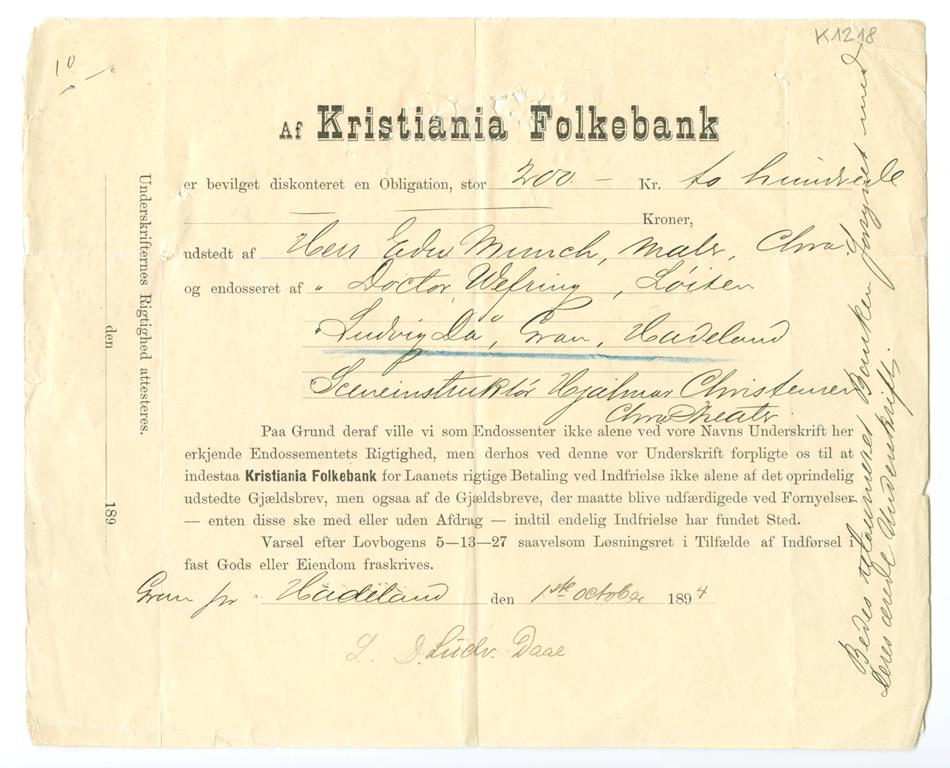 K1218
10
Af Kristiania Folkebank
er bevilget diskonteret en Obligation, stor 200 – Kr. to hundrede
Kroner,
udstedt af Herr Edv Munch, maler, Chra.
og endosseret af „ Doctor Wefring, Løiten
„ Ludvig Då, Gran, Hadeland
Sceneinstruktør Hjalmar Christensen
Chra Theater.
Paa Grund deraf ville vi som Endossenter ikke alene ved vore Navns Underskrift her
erkjende Endossementets Rigtighed, men derhos ved denne vor Underskrift forpligte os til at
indestaa Kristiania Folkebank for Laanets rigtige Betaling ved Indfrielse ikke alene af det oprindelig
udstedte Gjældsbrev, men ogsaa af de Gjældsbreve, der maatte blive udfærdigede ved Fornyelser
— enten disse ske med eller uden Afdrag — indtil endelig Indfrielse har fundet Sted.
Varsel efter Lovbogens 5—13—27 saavelsom Løsningsret i Tilfælde af Indførsel i
fast Gods eller Eiendom fraskrives.
Gran pr Hadeland den 1ste october 1894
L. D. Ludv. Daae
Underskrifternes Rigtighed attesteres.
den 189
Bedes returneret Banken forsynet med
Deres ærede Underskrift.